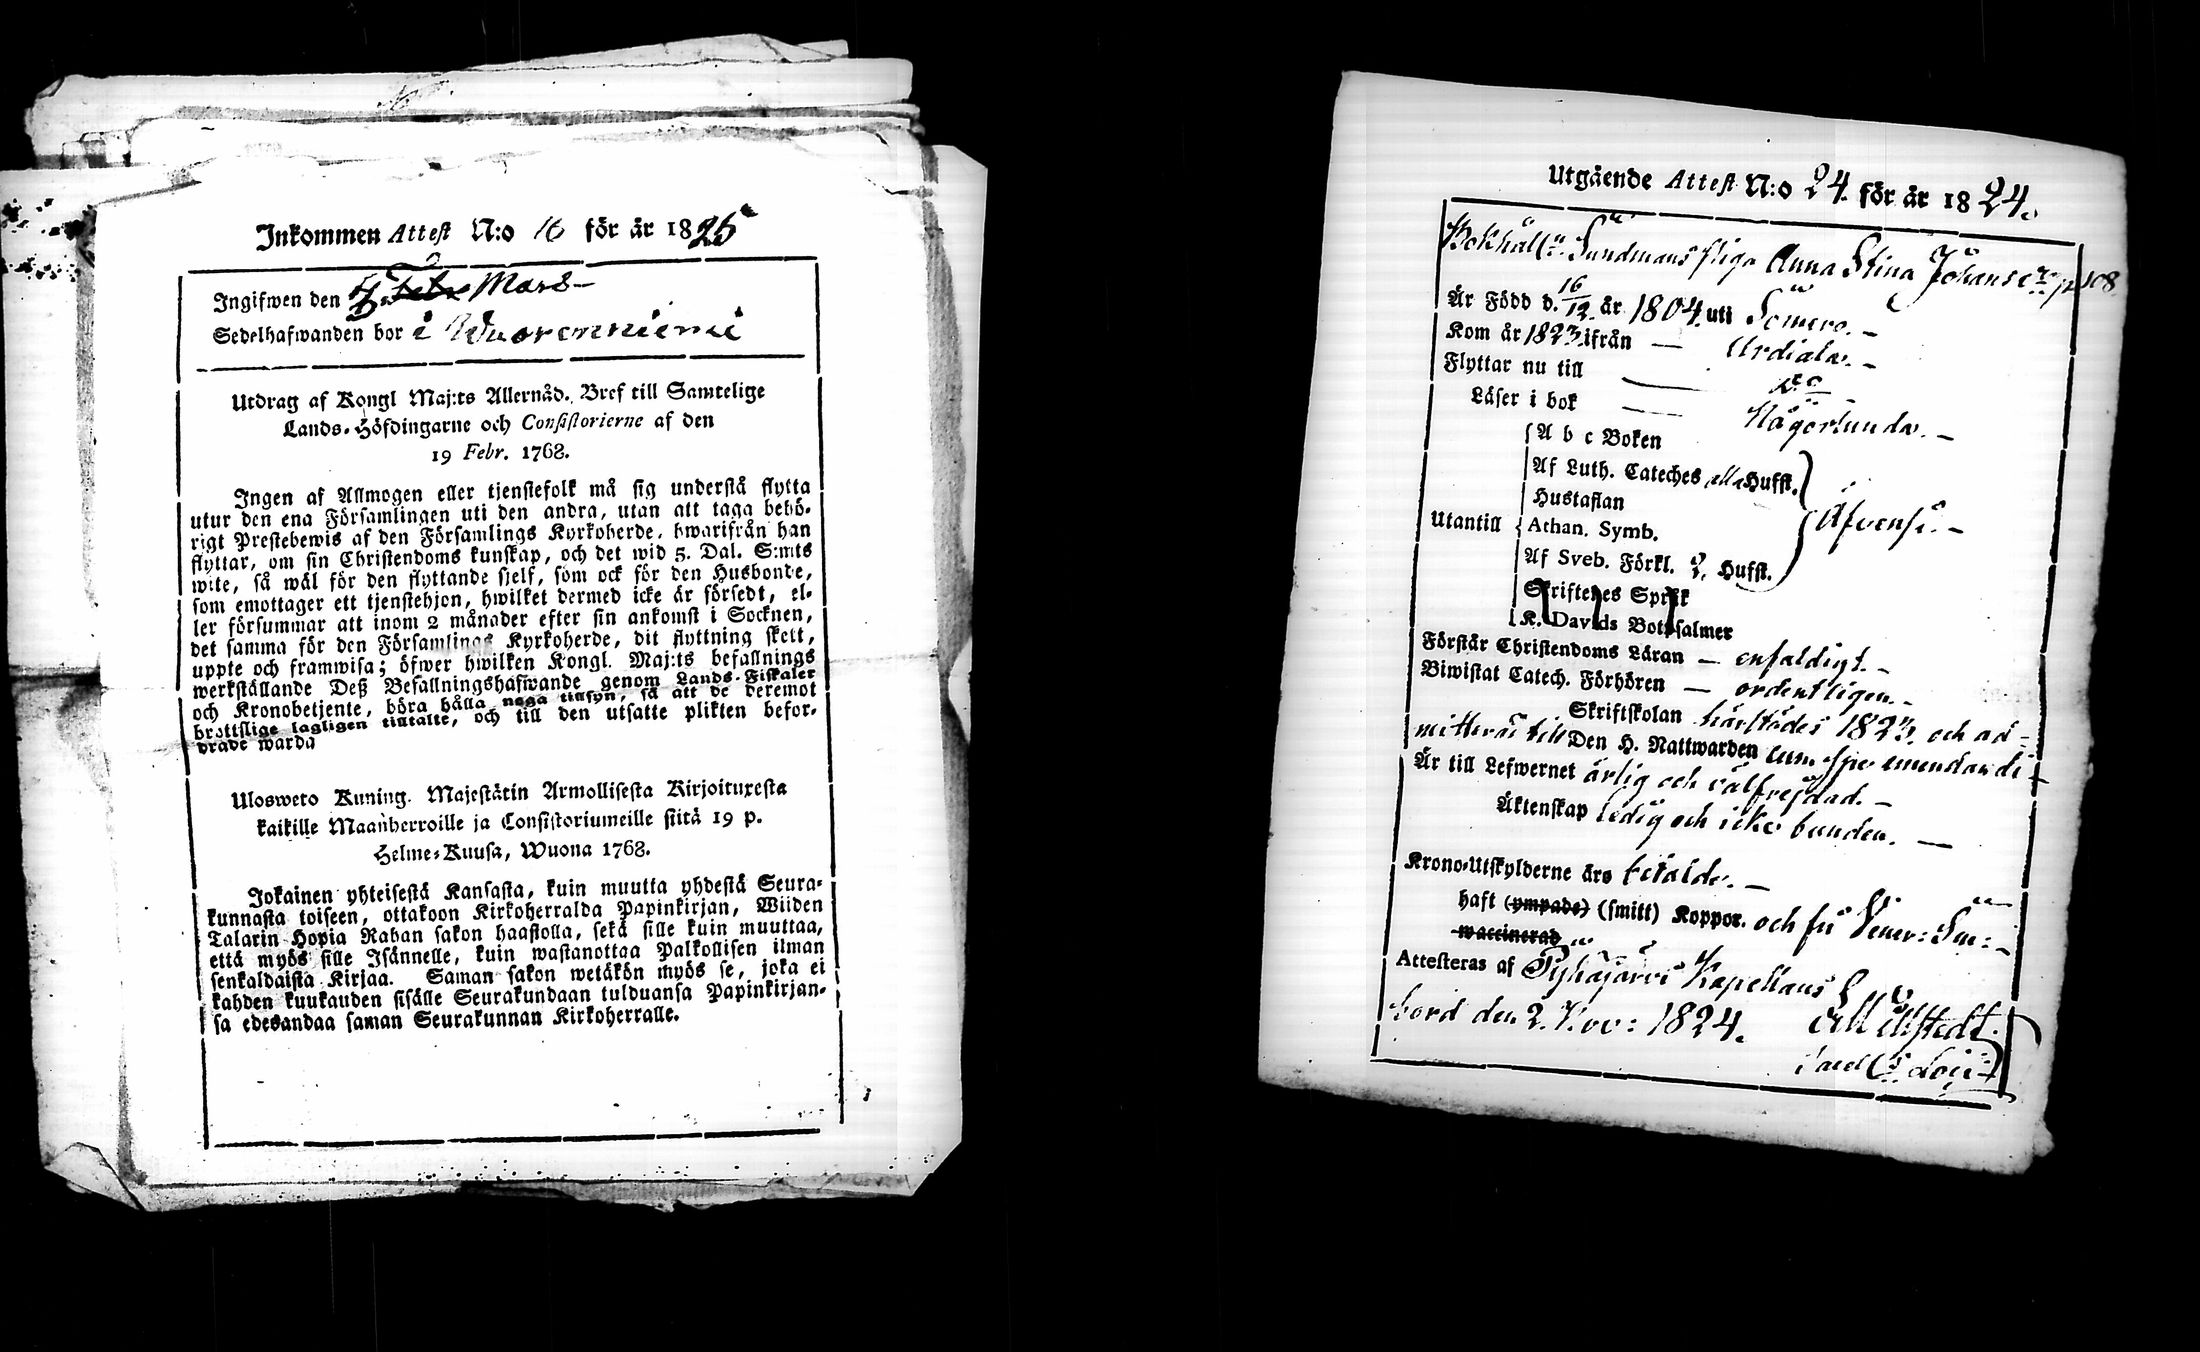 Inkommen Attest N:o 16 för år 1825
Ingifwen den 7. Febr. Mars
Sedelhafwanden bor i Wuorenniemi
Utdrag af Kongl Maj:ts Allernåd. Bref till Samtelige
Lands-Höfdingarne och Consistorierne af den
19 Febr. 1768.
Ingen af Allmogen eller tjenstefolk må sig understå flytta
utur den ena Församlingen uti den andra, utan att taga behö-
rigt Prestebewis af den Församlings Kyrkoherde, hwarifrån han
flyttar, om sin Christendoms kunskap, och det wid 5. Dal. S:mts
wite, så wäl för den flyttande sjelf, som ock för den Husbonde,
som emottager ett tjenstehjon, hwilket dermed icke är försedt, el-
ler försummar att inom 2 månader efter sin ankomst i Socknen,
det samma för den Församlings Kyrkoherde, dit flyttning skett,
uppte och framwisa; öfwer hwilken Kongl. Maj:ts befallnings
werkställande Deß Befallningshafwande genom Lands-Fiskaler
och Kronobetjente, böra hålla noga tillsyn, så att de deremot
brottslige lagligen tilltalte, och till den utsatte plikten befor-
drade warda
Ulosweto Kuning. Majestätin Armollisesta Kirjoituxesta
kaikille Maanherroille ja Consistoriumeille siitä 19 p.
Helme-Kuusa, Wuona 1768.
Jokainen yhteisestä Kansasta, kuin muutta yhdestä Seura-
kunnasta toiseen, ottakoon Kirkoherralda Papinkirjan, Wiiden
Talarin Hopia Rahan sakon haastolla, sekä sille kuin muuttaa,
että myös sille Isännelle, kuin wastanottaa Palkollisen ilman
senkaldaista Kirjaa. Saman sakon wetäkön myös se, joka ei
kahden kuukauden sisälle Seurakundaan tulduansa Papinkirjan-
sa edesandaa saman Seurakunnan Kirkoherralle.
Utgående Attest N:o 24. för år 1824.
Bokhåll:n Sundmans Piga Anna Stina Johansd:r p 108
Är Född d. 16/12. år 1804. uti Somero. –
Kom år 1823. ifrån — Urdiala. –
Flyttar nu till
Läser i bok — Någorlunda. –
A b c Boken
Af Luth. Cateches alla Hufst.
Hustaflan
Utantill Athan. Symb. Äfvenså. –
Af Sveb. Förkl. 2. Hufst.
Skriftenes Språk
K. Davids Botpsalmer
Förstår Christendoms Läran — enfaldigt. –
Biwistat Catech. Förhören — ordentligen. –
Skriftskolan härstädes 1823. och ad-
mitterad till Den H. Nattwarden cum spe emendandi –
Är till Lefwernet ärlig och välfrejdad. –
Äktenskap ledig och icke bunden. —
Krono-Utskylderne äro betalde. –
haft (ympade) (smitt) Koppor. och fri Vener: Sm: –
waccinerad
Attesteras af Pyhäjärvi Kapellans
bord den 2. Nov: 1824.